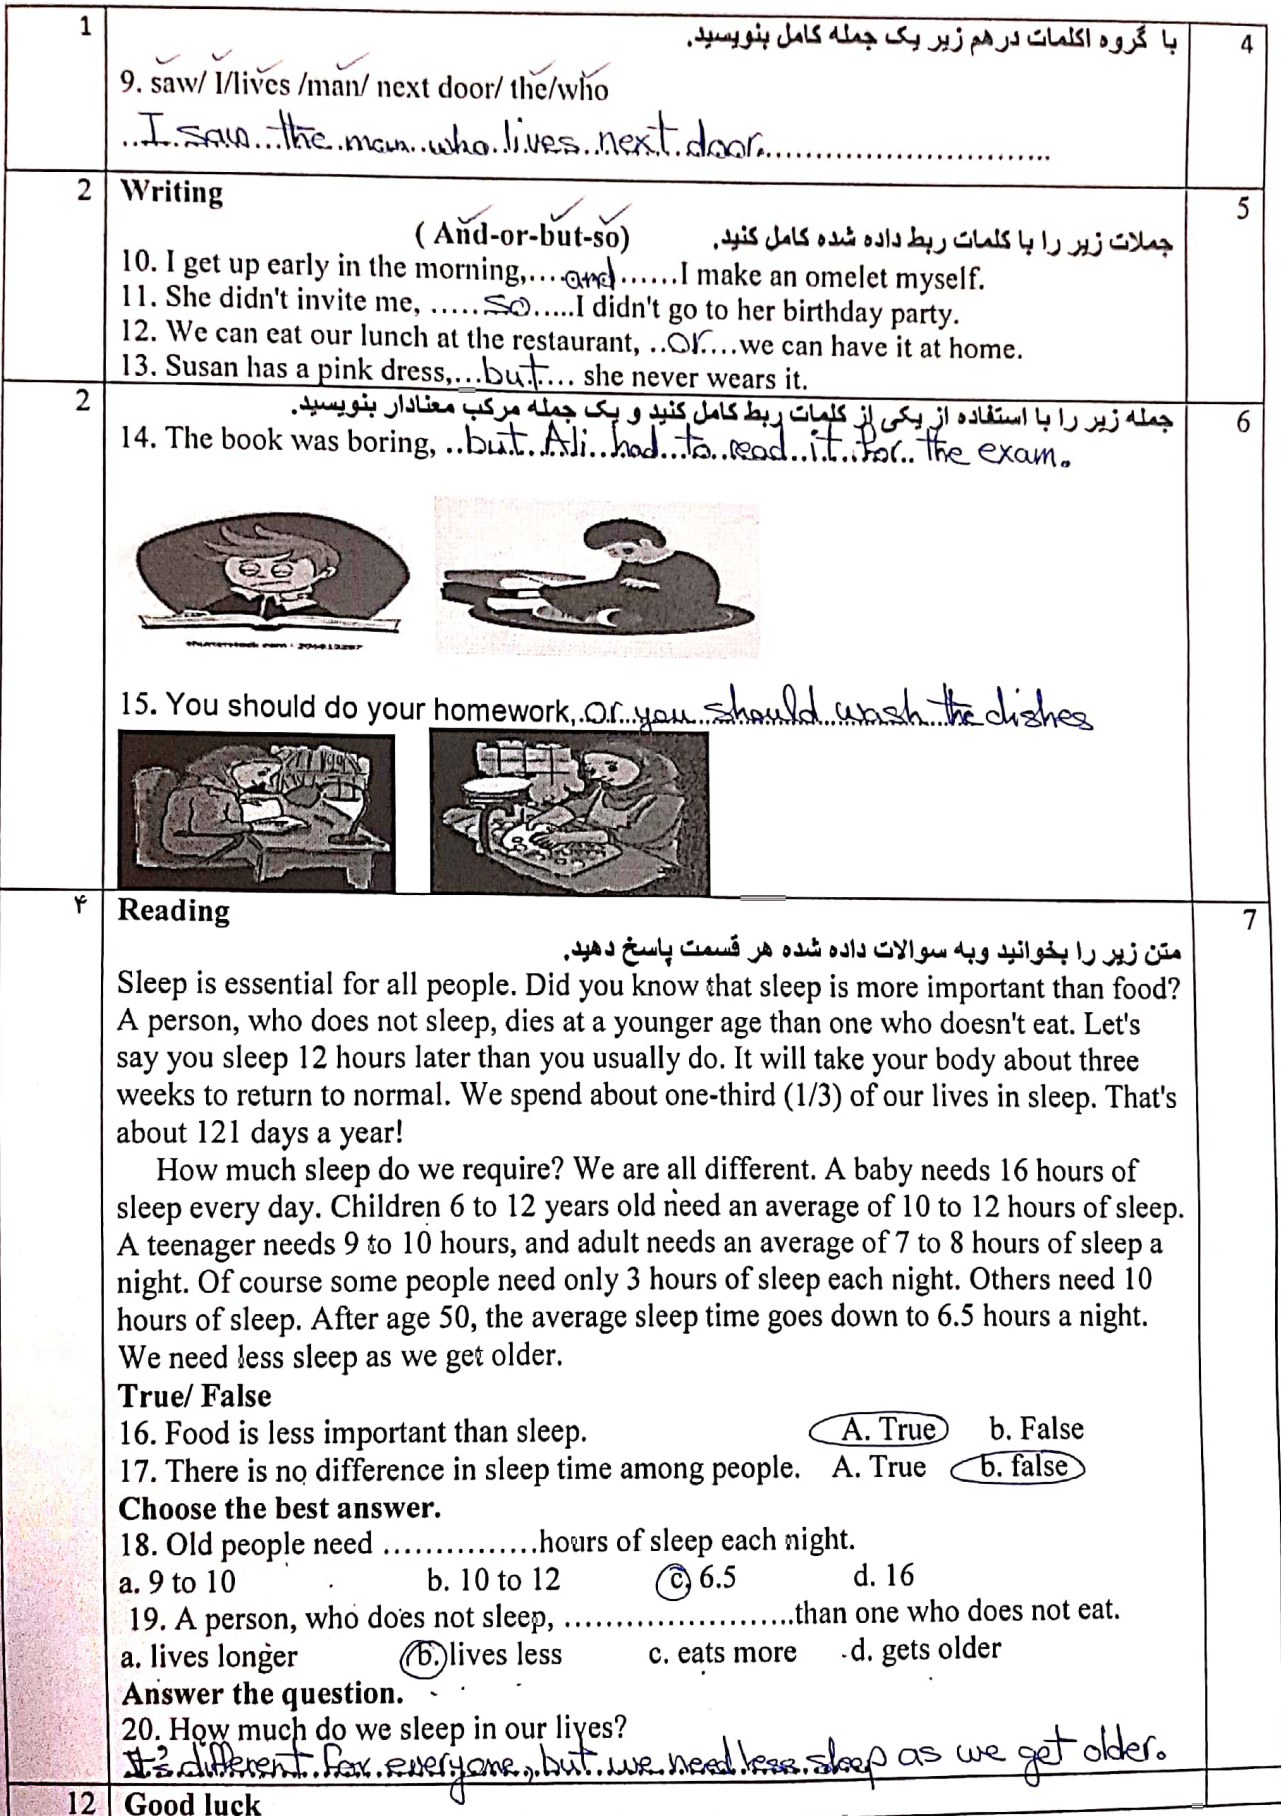 1
با گروه اکلمات درهم زیر یک جمله کامل بنویسید.
4
9. saw/ I/lives /man/ next door/ the/who
..I saw...the.man..who.lives..next.door...............................
2
Writing
5
( And-or-but-so)
جملات زیر را با کلمات ربط داده شده کامل کنید.
10. I get up early in the morning,....and......I make an omelet myself.
11. She didn't invite me, .....so.....I didn't go to her birthday party.
12. We can eat our lunch at the restaurant, ..or....we can have it at home.
13. Susan has a pink dress,...but.... she never wears it.
2
جمله زیر را با استفاده از یکی از کلمات ربط کامل کنید و یک جمله مرکب معنادار بنویسید.
6
14. The book was boring, ..but.Ali..had...to..read..it..for.. the exam.
15. You should do your homework,.or..you...should...wash..the dishes
۴
Reading
7
متن زیر را بخوانید وبه سوالات داده شده هر قسمت پاسخ دهید.
Sleep is essential for all people. Did you know that sleep is more important than food?
A person, who does not sleep, dies at a younger age than one who doesn't eat. Let's
say you sleep 12 hours later than you usually do. It will take your body about three
weeks to return to normal. We spend about one-third (1/3) of our lives in sleep. That's
about 121 days a year!
How much sleep do we require? We are all different. A baby needs 16 hours of
sleep every day. Children 6 to 12 years old need an average of 10 to 12 hours of sleep.
A teenager needs 9 to 10 hours, and adult needs an average of 7 to 8 hours of sleep a
night. Of course some people need only 3 hours of sleep each night. Others need 10
hours of sleep. After age 50, the average sleep time goes down to 6.5 hours a night.
We need less sleep as we get older.
True/ False
16. Food is less important than sleep. A. True b. False
17. There is no difference in sleep time among people. A. True b. false
Choose the best answer.
18. Old people need ...............hours of sleep each night.
a. 9 to 10 b. 10 to 12 c. 6.5 d. 16
19. A person, who does not sleep, .......................than one who does not eat.
a. lives longer b. lives less c. eats more d. gets older
Answer the question.
20. How much do we sleep in our lives?
It's different for everyone, but we need less sleep as we get older.
12
Good luck